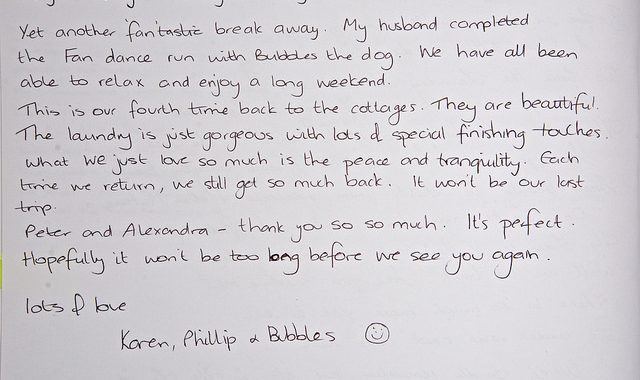 Yet another 'fan'tastic break away. My husband completed
the Fan dance run with Bubbles the dog. We have all been
able to relax and enjoy a long weekend.
This is our fourth time back to the cottages. They are beautiful.
The laundry is just gorgeous with lots of special finishing touches.
What we just love so much is the peace and tranquility. Each
time we return, we still get so much back. It won't be our last
trip.
Peter and Alexandra - thank you so so much. It's perfect.
Hopefully it won't be too long before we see you again.
lots of love
Karen, Phillip & Bubbles ☺